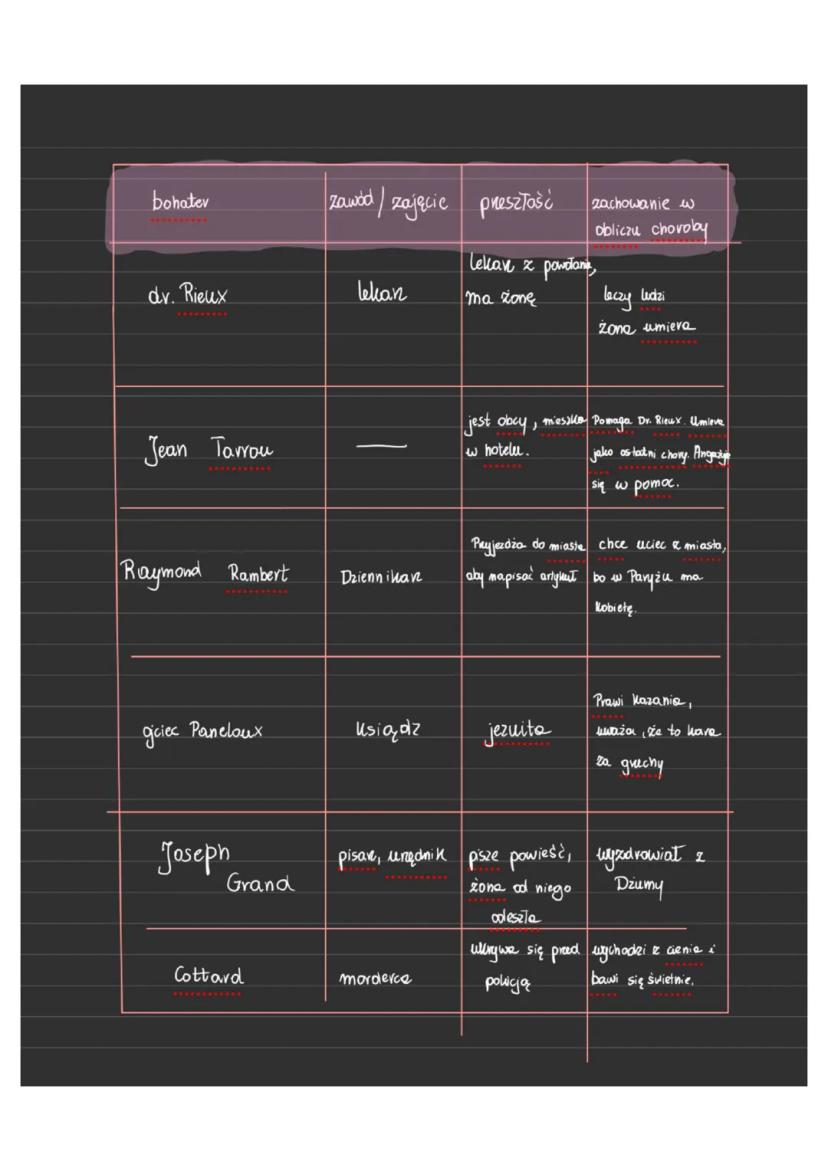 bohater
zawód / zajęcie
przeszłość
zachowanie w
obliczu choroby
dr. Rieux
lekarz
lekarz z powołania,
ma żonę
leczy ludzi
żona umiera
Jean Tarrou
—
jest obcy, mieszka
w hotelu.
Pomaga Dr. Rieux. Umiera
jako ostatni chory. Angażuje
się w pomoc.
Raymond Rambert
Dziennikarz
Przyjeżdża do miasta
aby napisać artykuł
chce uciec z miasta,
bo w Paryżu ma
kobietę.
ojciec Paneloux
ksiądz
jezuita
Prawi kazania,
uważa, że to kara
za grzechy
Joseph
Grand
pisarz, urzędnik
pisze powieść,
żona od niego
odeszła
wyzdrowiał z
Dżumy
Cottard
morderca
ukrywa się przed
policją
wychodzi z cienia i
bawi się świetnie.